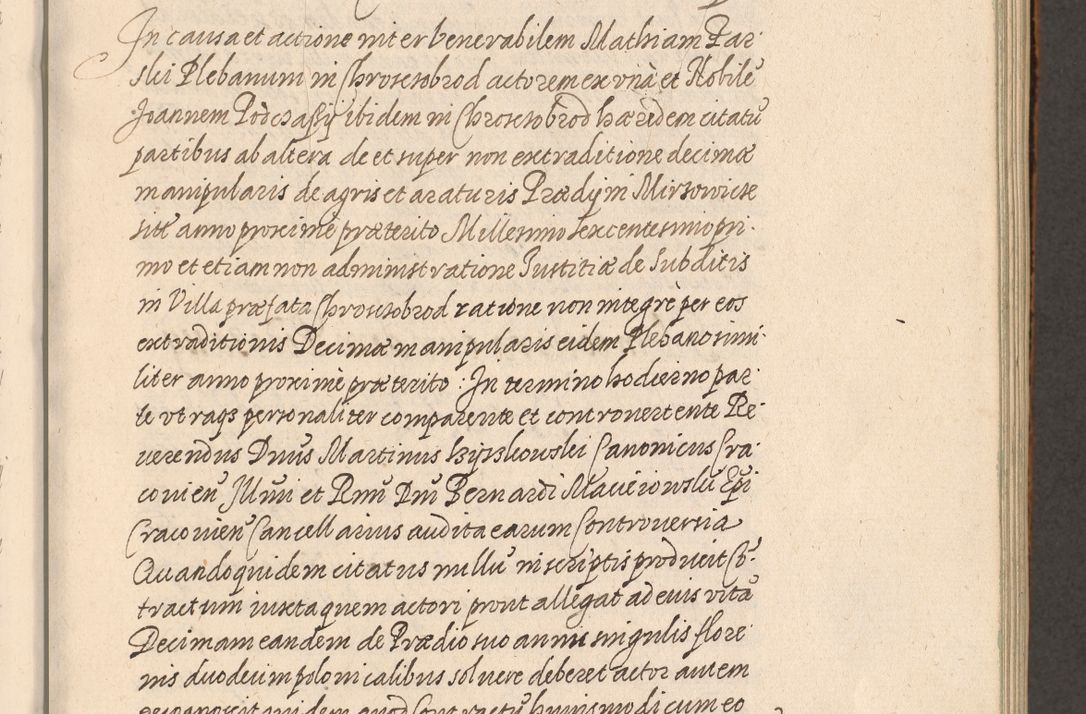 In causa et actione inter Venerabilem Mathiam Par-
skii Plebanum in Chrosctobrod actorem ex vna et Nobile
Joannem Podczaskÿ ibidem in Chrosctobrod hæredem citatū
partibus ab altera de et super non extraditione decimæ
manipularis de agris et araturis Prædÿ in Mirsowicze
sitē anno proxime præterito Millesimo sexcentesimo pri-
mo et etiam non administratione Justitiæ de Subditis
in Villa præfata Chrosctobrod ratione non integrè per eos
extraditionis Decimæ manipularis eidem Plebano simi-
liter anno proximè præterito. In termino hodierno par-
te vtraqs personaliter comparente et controuertente Re-
uerendus Dnūs Martinus Szyszkowski Canonicus Cra-
couien̄ Illmi et Rmī Dnī Bernardi Macieiowskii Epī
Cracouien̄ Cancellarius audita earum Controuersia
Quandoquidem citatus nullū in scriptis producit Cō-
tractum iuxta quem actori prout allegat ad eius vitā
Decimam eandem de Prædio suo annis singulis flore-
nis duodecim polonicalibus soluere deberet actor autem
quidem quod Contractū huiusmodi cum eo